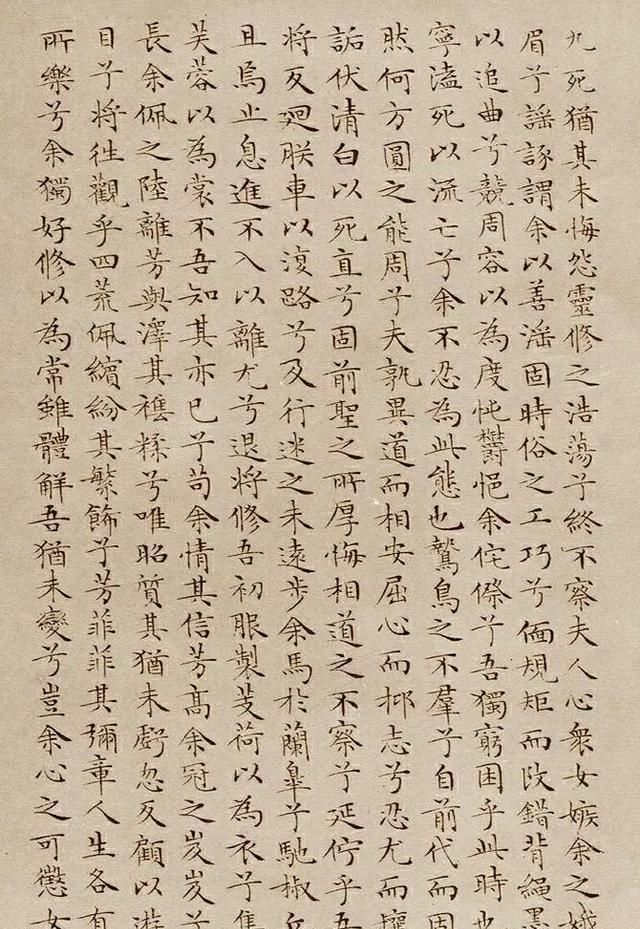 九死猶其未悔怨靈修之浩蕩兮終不察夫人心衆女嫉余之娥
眉兮謡諑謂余以善滛固時俗之工巧兮偭規矩而改錯背繩墨
以追曲兮競周容以為度忳欝悒余侘傺兮吾獨窮困乎此時也
寧溘死以流亡兮余不忍為此態也鷙鳥之不羣兮自前代而固
然何方圓之能周兮夫孰異道而相安屈心而抑志兮忍尤而攘
詬伏清白以死直兮固前聖之所厚悔相道之不察兮延佇乎吾
將反廻朕車以復路兮及行迷之未遠步余馬於蘭皐兮馳椒丘
且焉止息進不入以離尤兮退將修吾初服製芰荷以為衣兮集
芙蓉以為裳不吾知其亦已兮苟余情其信芳髙余冠之岌岌兮
長余佩之陸離芳與澤其襍糅兮唯昭質其猶未虧忽反顧以遊
目兮將往觀乎四荒佩繽紛其繁飾兮芳菲菲其彌章人生各有
所樂兮余獨好修以為常雖體解吾猶未變兮豈余心之可懲女